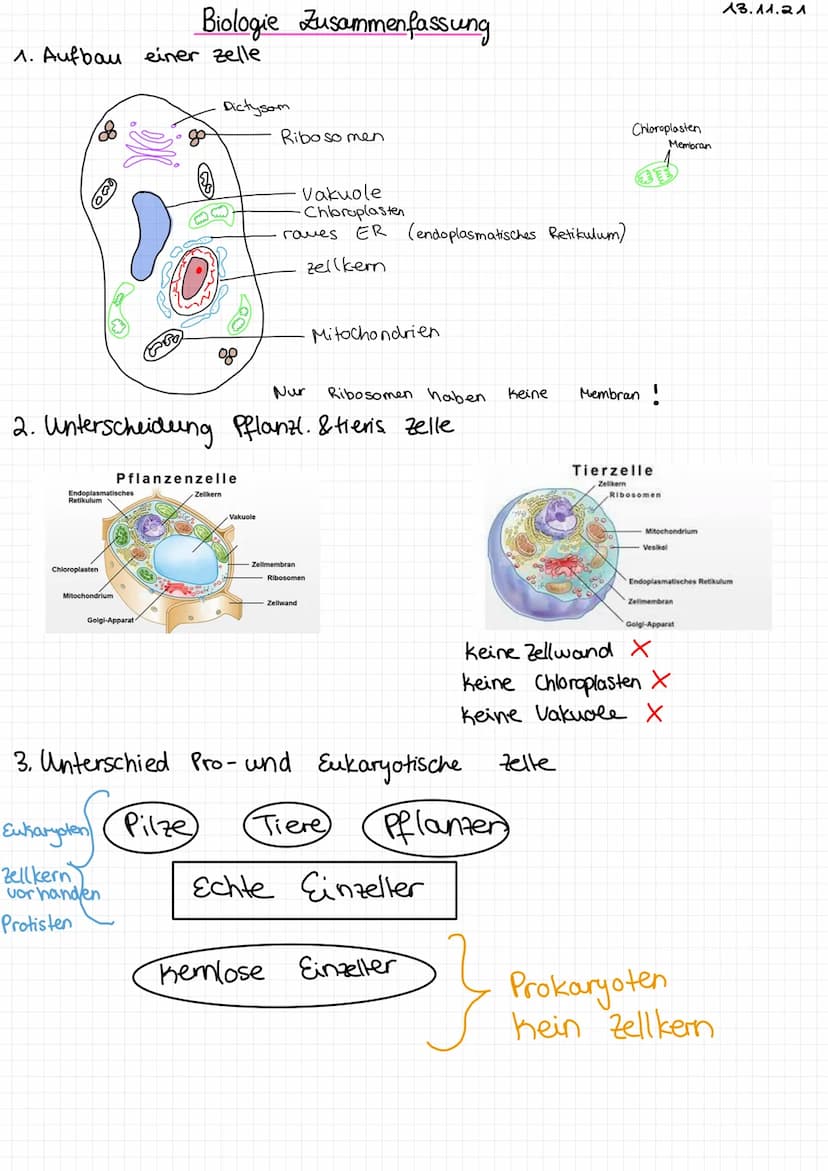 Biologie Zusammenfassung
13.11.21
1. Aufbau einer Zelle
Dictysom
Ribosomen
Chloroplasten
Membran
Vakuole
Chloroplasten
raues ER (endoplasmatisches Retikulum)
Zellkern
Mitochondrien
Nur Ribosomen haben keine Membran !
2. Unterscheidung Pflanzl. & tieris Zelle
Pflanzenzelle
Endoplasmatisches
Retikulum
Zellkern
Vakuole
Chloroplasten
Zellmembran
Ribosomen
Mitochondrium
Zellwand
Golgi-Apparat
Tierzelle
Zellkern
Ribosomen
Mitochondrium
Vesikel
Endoplasmatisches Retikulum
Zellmembran
Golgi-Apparat
keine Zellwand X
keine Chloroplasten X
keine Vakuole X
3. Unterschied Pro- und Eukaryotische Zelle
Eukaryoten
Pilze
Tiere
Pflanzen
Zellkern
vorhanden
Echte Einzeller
Protisten
Kernlose Einzeller
Prokaryoten
kein Zellkern